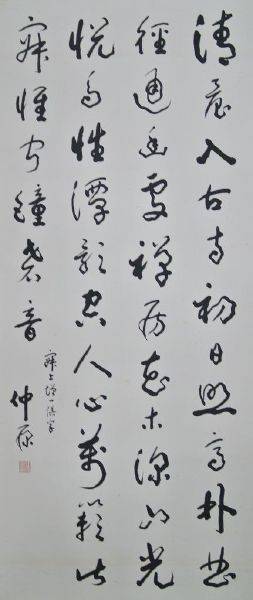 清晨入古寺初日照高林曲
徑通幽處禪房花木深山光
悅鳥性潭影空人心萬籟此
寂惟聞鐘磬音
寂上脱一俱字
仲